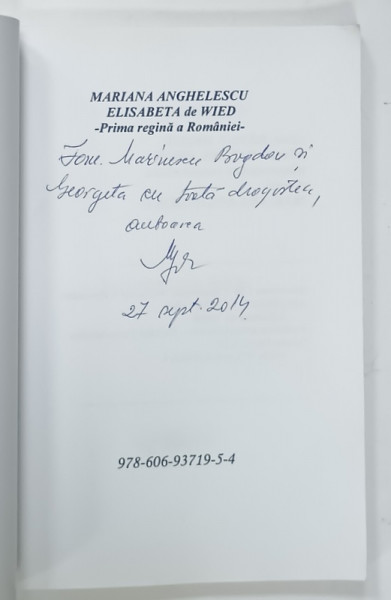 MARIANA ANGHELESCU
ELISABETA de WIED
-Prima regină a României-
Fam. Marinescu Bogdan și
Georgeta cu toată dragostea,
autoarea
27 sept. 2014
978-606-93719-5-4